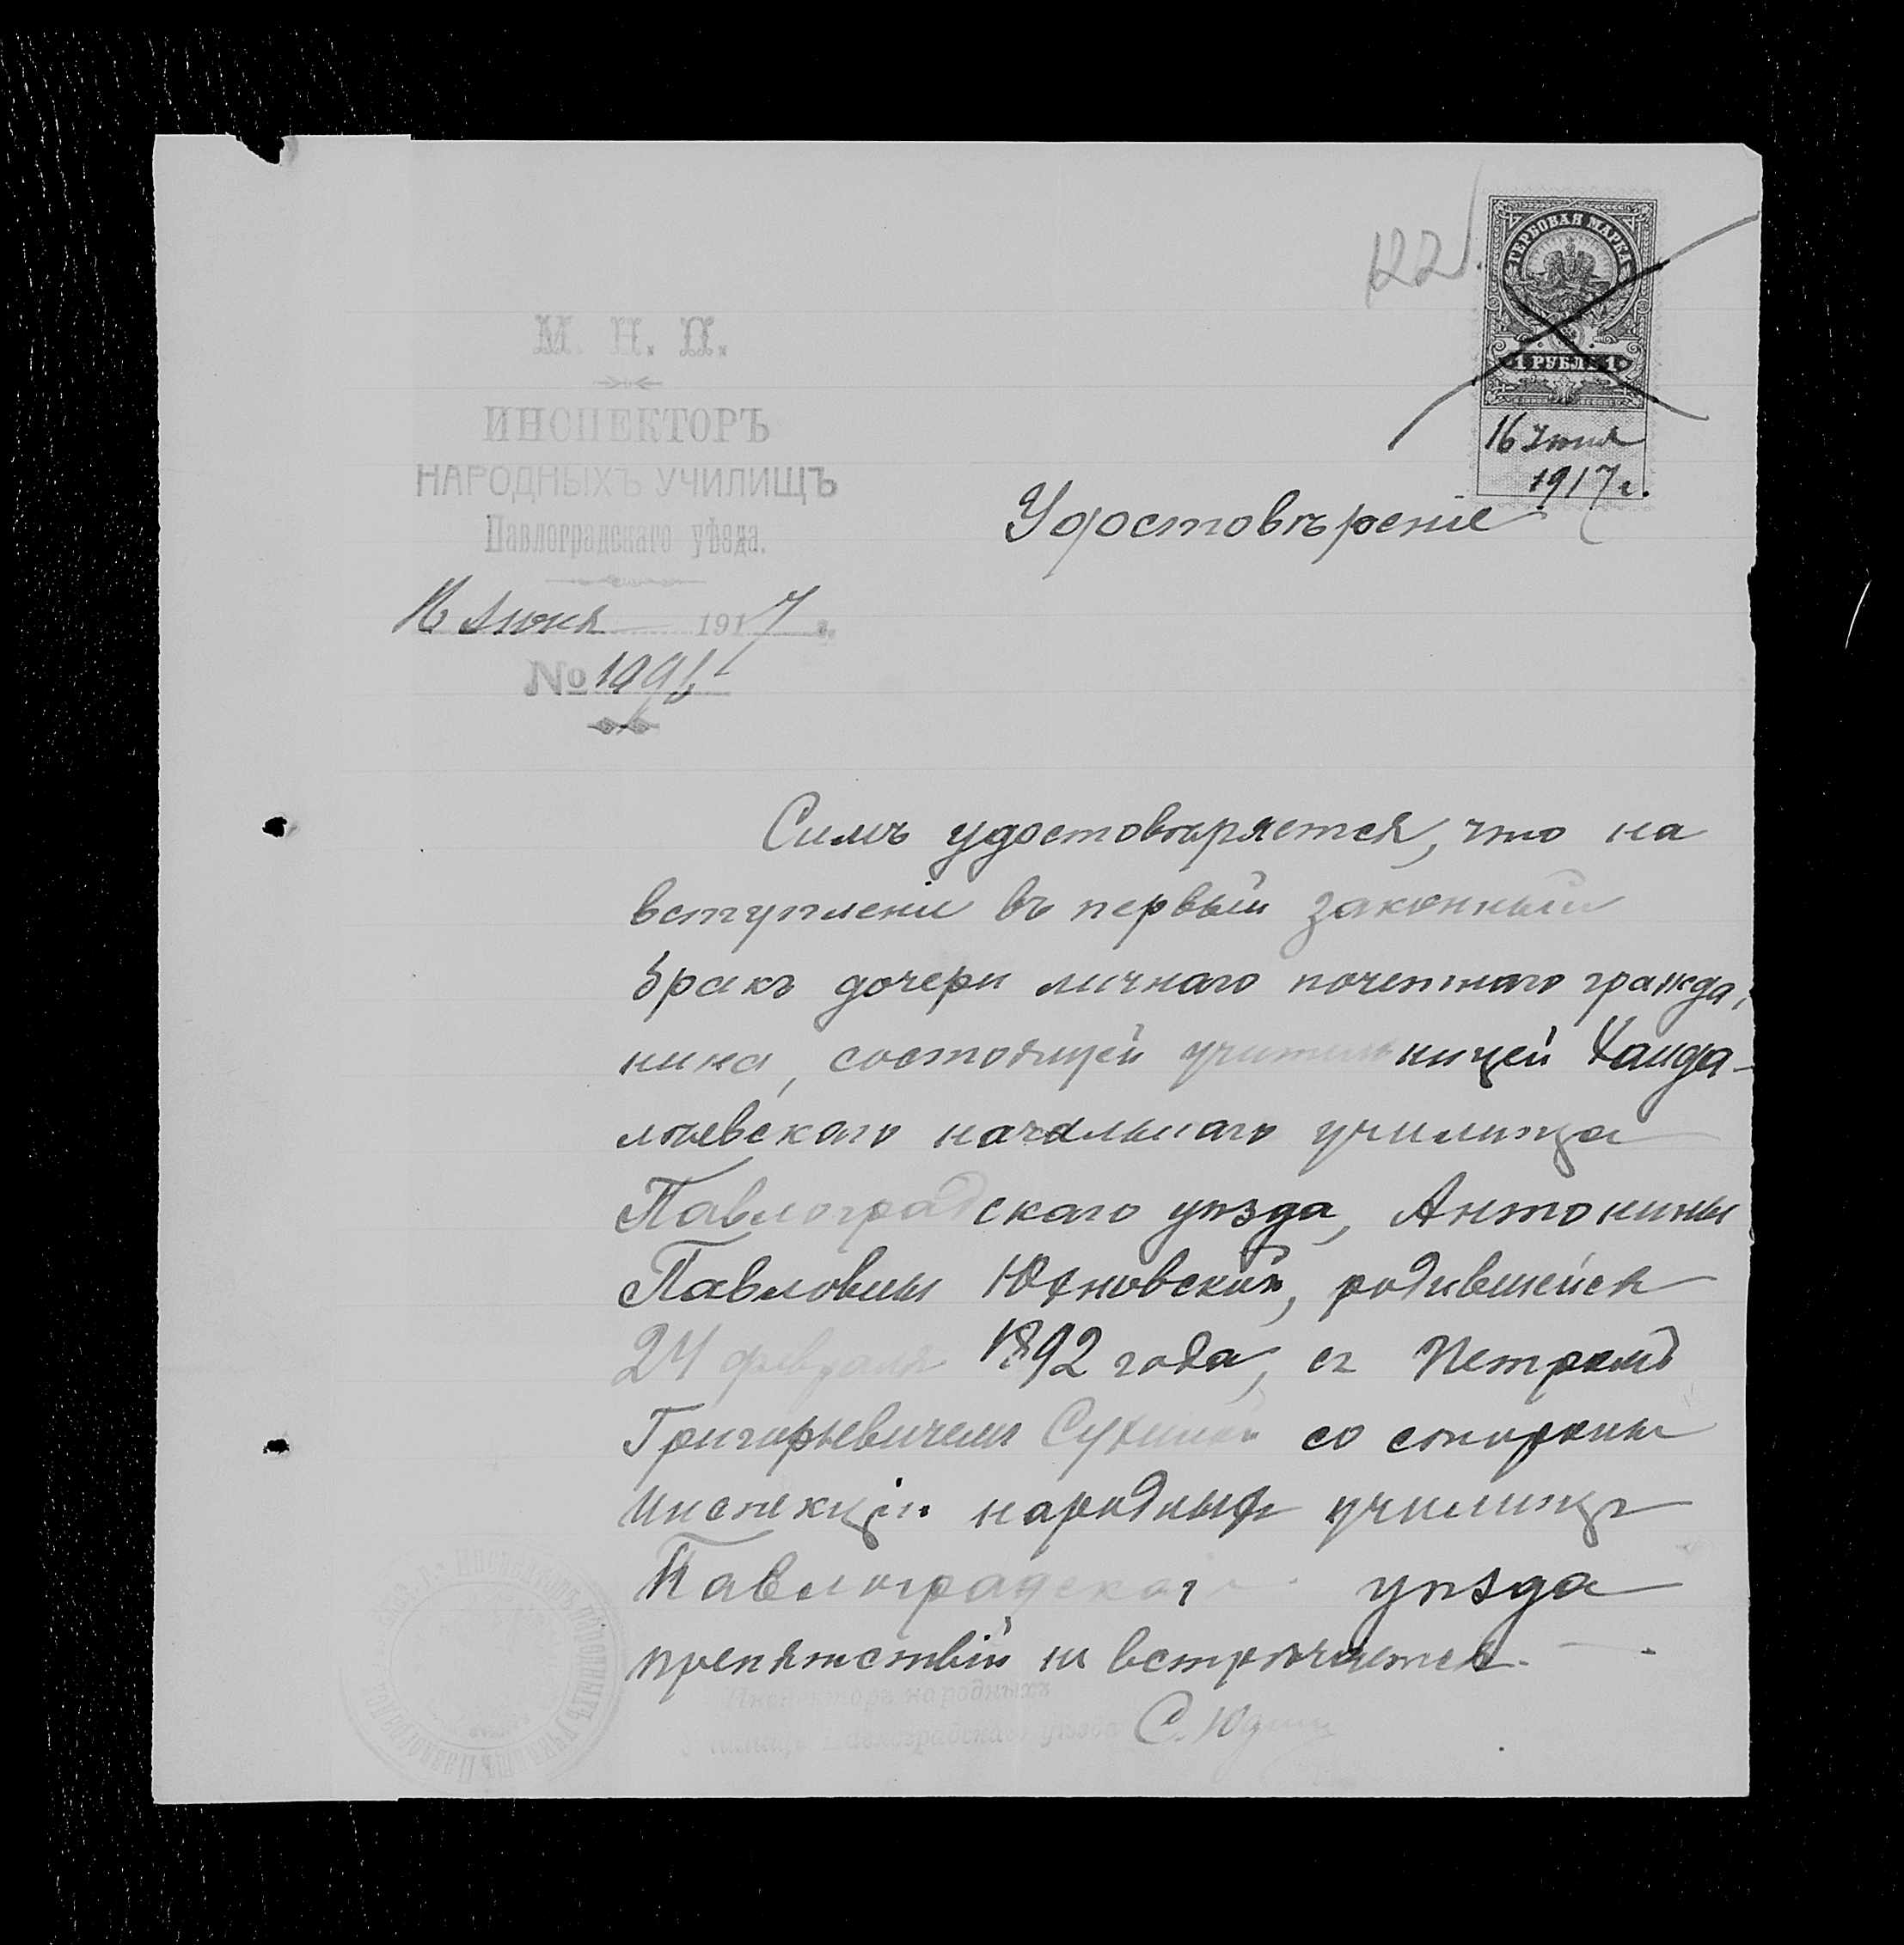 122
ГЕРБОВАЯ МАРКА
1 РУБЛЬ 1
16 Іюня
1917 г.
М. Н. П.
ИНСПЕКТОРЪ
НАРОДНЫХЪ УЧИЛИЩЪ
Павлоградскаго уѣзда.
16 Іюня 1917 г.
№
Удостовѣреніе
Симъ удостовѣряется, что на
вступленіе въ первый законный
бракъ дочери личнаго почетнаго гражда-
нина, состоящей учительницей Хандо-
лѣевскаго начальнаго училища
Павлоградскаго уѣзда, Антонины
Павловны, родившейся
24 февраля 1892 года, съ Петромъ
Григорьевичемъ со стороны
Инспекціи народныхъ училищъ
Павлоградскаго уѣзда
препятствій не встрѣчается.
Инспекторъ народныхъ
училищъ Павлоградскаго уѣзда С.